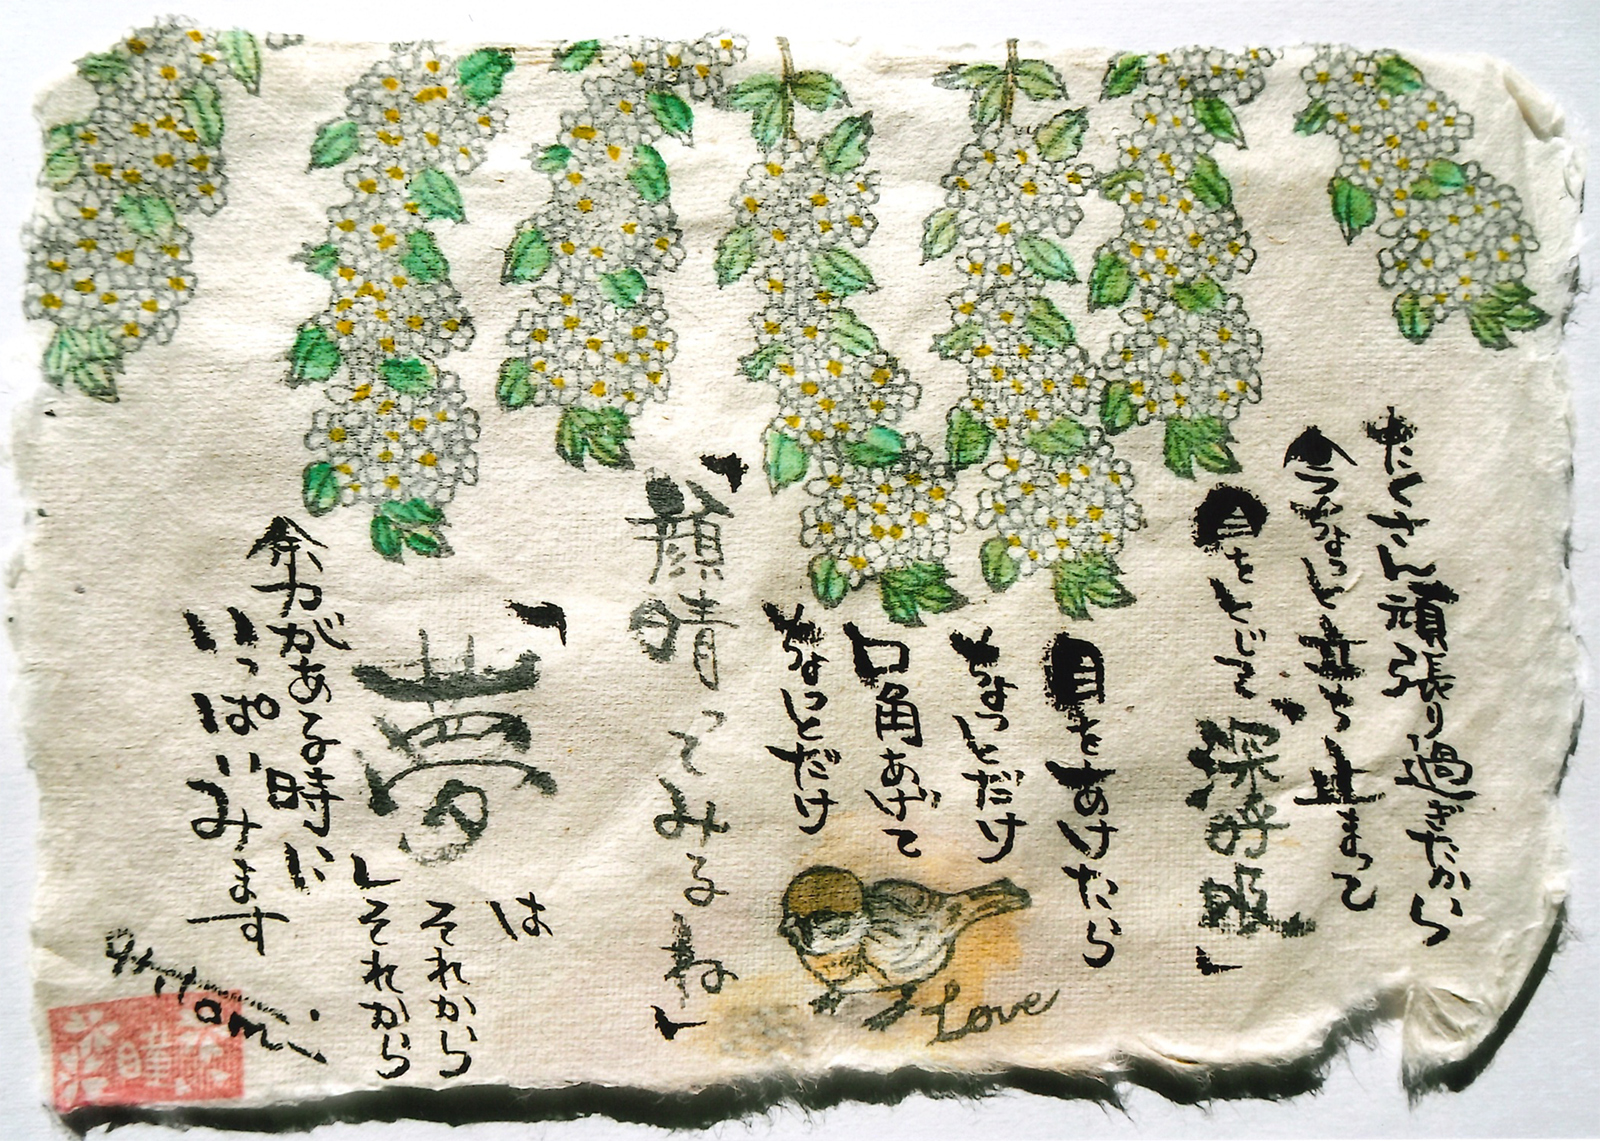 たくさん頑張り過ぎたから
今ちょっと立ち止まって
目をとじて「深呼吸」
目をあけたら
ちょっとだけ
口角あげて
ちょっとだけ
「顔晴ってみるね」
「夢」は
それから
それから
余力がある時に
いっぱいみます
Love